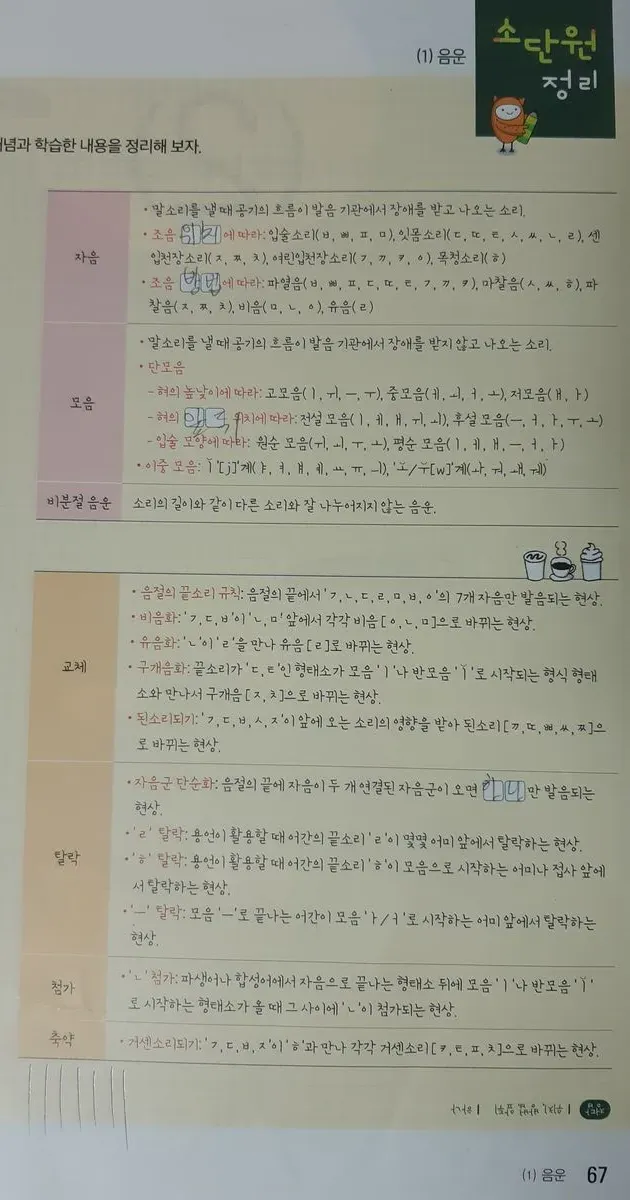 (1) 음운
소단원
정리
개념과 학습한 내용을 정리해 보자.
자음
• 말소리를 낼 때 공기의 흐름이 발음 기관에서 장애를 받고 나오는 소리.
• 조음 위치에 따라: 입술소리(ㅂ, ㅃ, ㅍ, ㅁ), 잇몸소리(ㄷ, ㄸ, ㅌ, ㅅ, ㅆ, ㄴ, ㄹ), 센
입천장소리(ㅈ, ㅉ, ㅊ), 여린입천장소리(ㄱ, ㄲ, ㅋ, ㅇ), 목청소리(ㅎ)
• 조음 방법에 따라: 파열음(ㅂ, ㅃ, ㅍ, ㄷ, ㄸ, ㅌ, ㄱ, ㄲ, ㅋ), 마찰음(ㅅ, ㅆ, ㅎ), 파
찰음(ㅈ, ㅉ, ㅊ), 비음(ㅁ, ㄴ, ㅇ), 유음(ㄹ)
모음
• 말소리를 낼 때 공기의 흐름이 발음 기관에서 장애를 받지 않고 나오는 소리.
• 단모음
- 혀의 높낮이에 따라: 고모음(ㅣ, ㅟ, ㅡ, ㅜ), 중모음(ㅔ, ㅚ, ㅓ, ㅗ), 저모음(ㅐ, ㅏ)
- 혀의 앞뒤 위치에 따라: 전설 모음(ㅣ, ㅔ, ㅐ, ㅟ, ㅚ), 후설 모음(ㅡ, ㅓ, ㅏ, ㅜ, ㅗ)
- 입술 모양에 따라: 원순 모음(ㅟ, ㅚ, ㅜ, ㅗ), 평순 모음(ㅣ, ㅔ, ㅐ, ㅡ, ㅓ, ㅏ)
• 이중 모음: 'ㅣ̆'[j]'계(ㅑ, ㅕ, ㅒ, ㅖ, ㅛ, ㅠ, ㅢ), 'ㅗ̆/ㅜ̆[w]'계(ㅘ, ㅝ, ㅙ, ㅞ)
비분절 음운
소리의 길이와 같이 다른 소리와 잘 나누어지지 않는 음운.
교체
• 음절의 끝소리 규칙: 음절의 끝에서 'ㄱ, ㄴ, ㄷ, ㄹ, ㅁ, ㅂ, ㅇ'의 7개 자음만 발음되는 현상.
• 비음화: 'ㄱ, ㄷ, ㅂ'이 'ㄴ, ㅁ' 앞에서 각각 비음 [ㅇ, ㄴ, ㅁ]으로 바뀌는 현상.
• 유음화: 'ㄴ'이 'ㄹ'을 만나 유음 [ㄹ]로 바뀌는 현상.
• 구개음화: 끝소리가 'ㄷ, ㅌ'인 형태소가 모음 'ㅣ'나 반모음 'ㅣ̆'로 시작되는 형식 형태
소와 만나서 구개음 [ㅈ, ㅊ]으로 바뀌는 현상.
• 된소리되기: 'ㄱ, ㄷ, ㅂ, ㅅ, ㅈ'이 앞에 오는 소리의 영향을 받아 된소리 [ㄲ, ㄸ, ㅃ, ㅆ, ㅉ]으
로 바뀌는 현상.
탈락
• 자음군 단순화: 음절의 끝에 자음이 두 개 연결된 자음군이 오면 하나만 발음되는
현상.
• 'ㄹ' 탈락: 용언이 활용할 때 어간의 끝소리 'ㄹ'이 몇몇 어미 앞에서 탈락하는 현상.
• 'ㅎ' 탈락: 용언이 활용할 때 어간의 끝소리 'ㅎ'이 모음으로 시작하는 어미나 접사 앞에
서 탈락하는 현상.
• 'ㅡ' 탈락: 모음 'ㅡ'로 끝나는 어간이 모음 'ㅏ/ㅓ'로 시작하는 어미 앞에서 탈락하는
현상.
첨가
• 'ㄴ' 첨가: 파생어나 합성어에서 자음으로 끝나는 형태소 뒤에 모음 'ㅣ'나 반모음 'ㅣ̆'
로 시작하는 형태소가 올 때 그 사이에 'ㄴ'이 첨가되는 현상.
축약
• 거센소리되기: 'ㄱ, ㄷ, ㅂ, ㅈ'이 'ㅎ'과 만나 각각 거센소리 [ㅋ, ㅌ, ㅍ, ㅊ]으로 바뀌는 현상.
(1) 음운 67